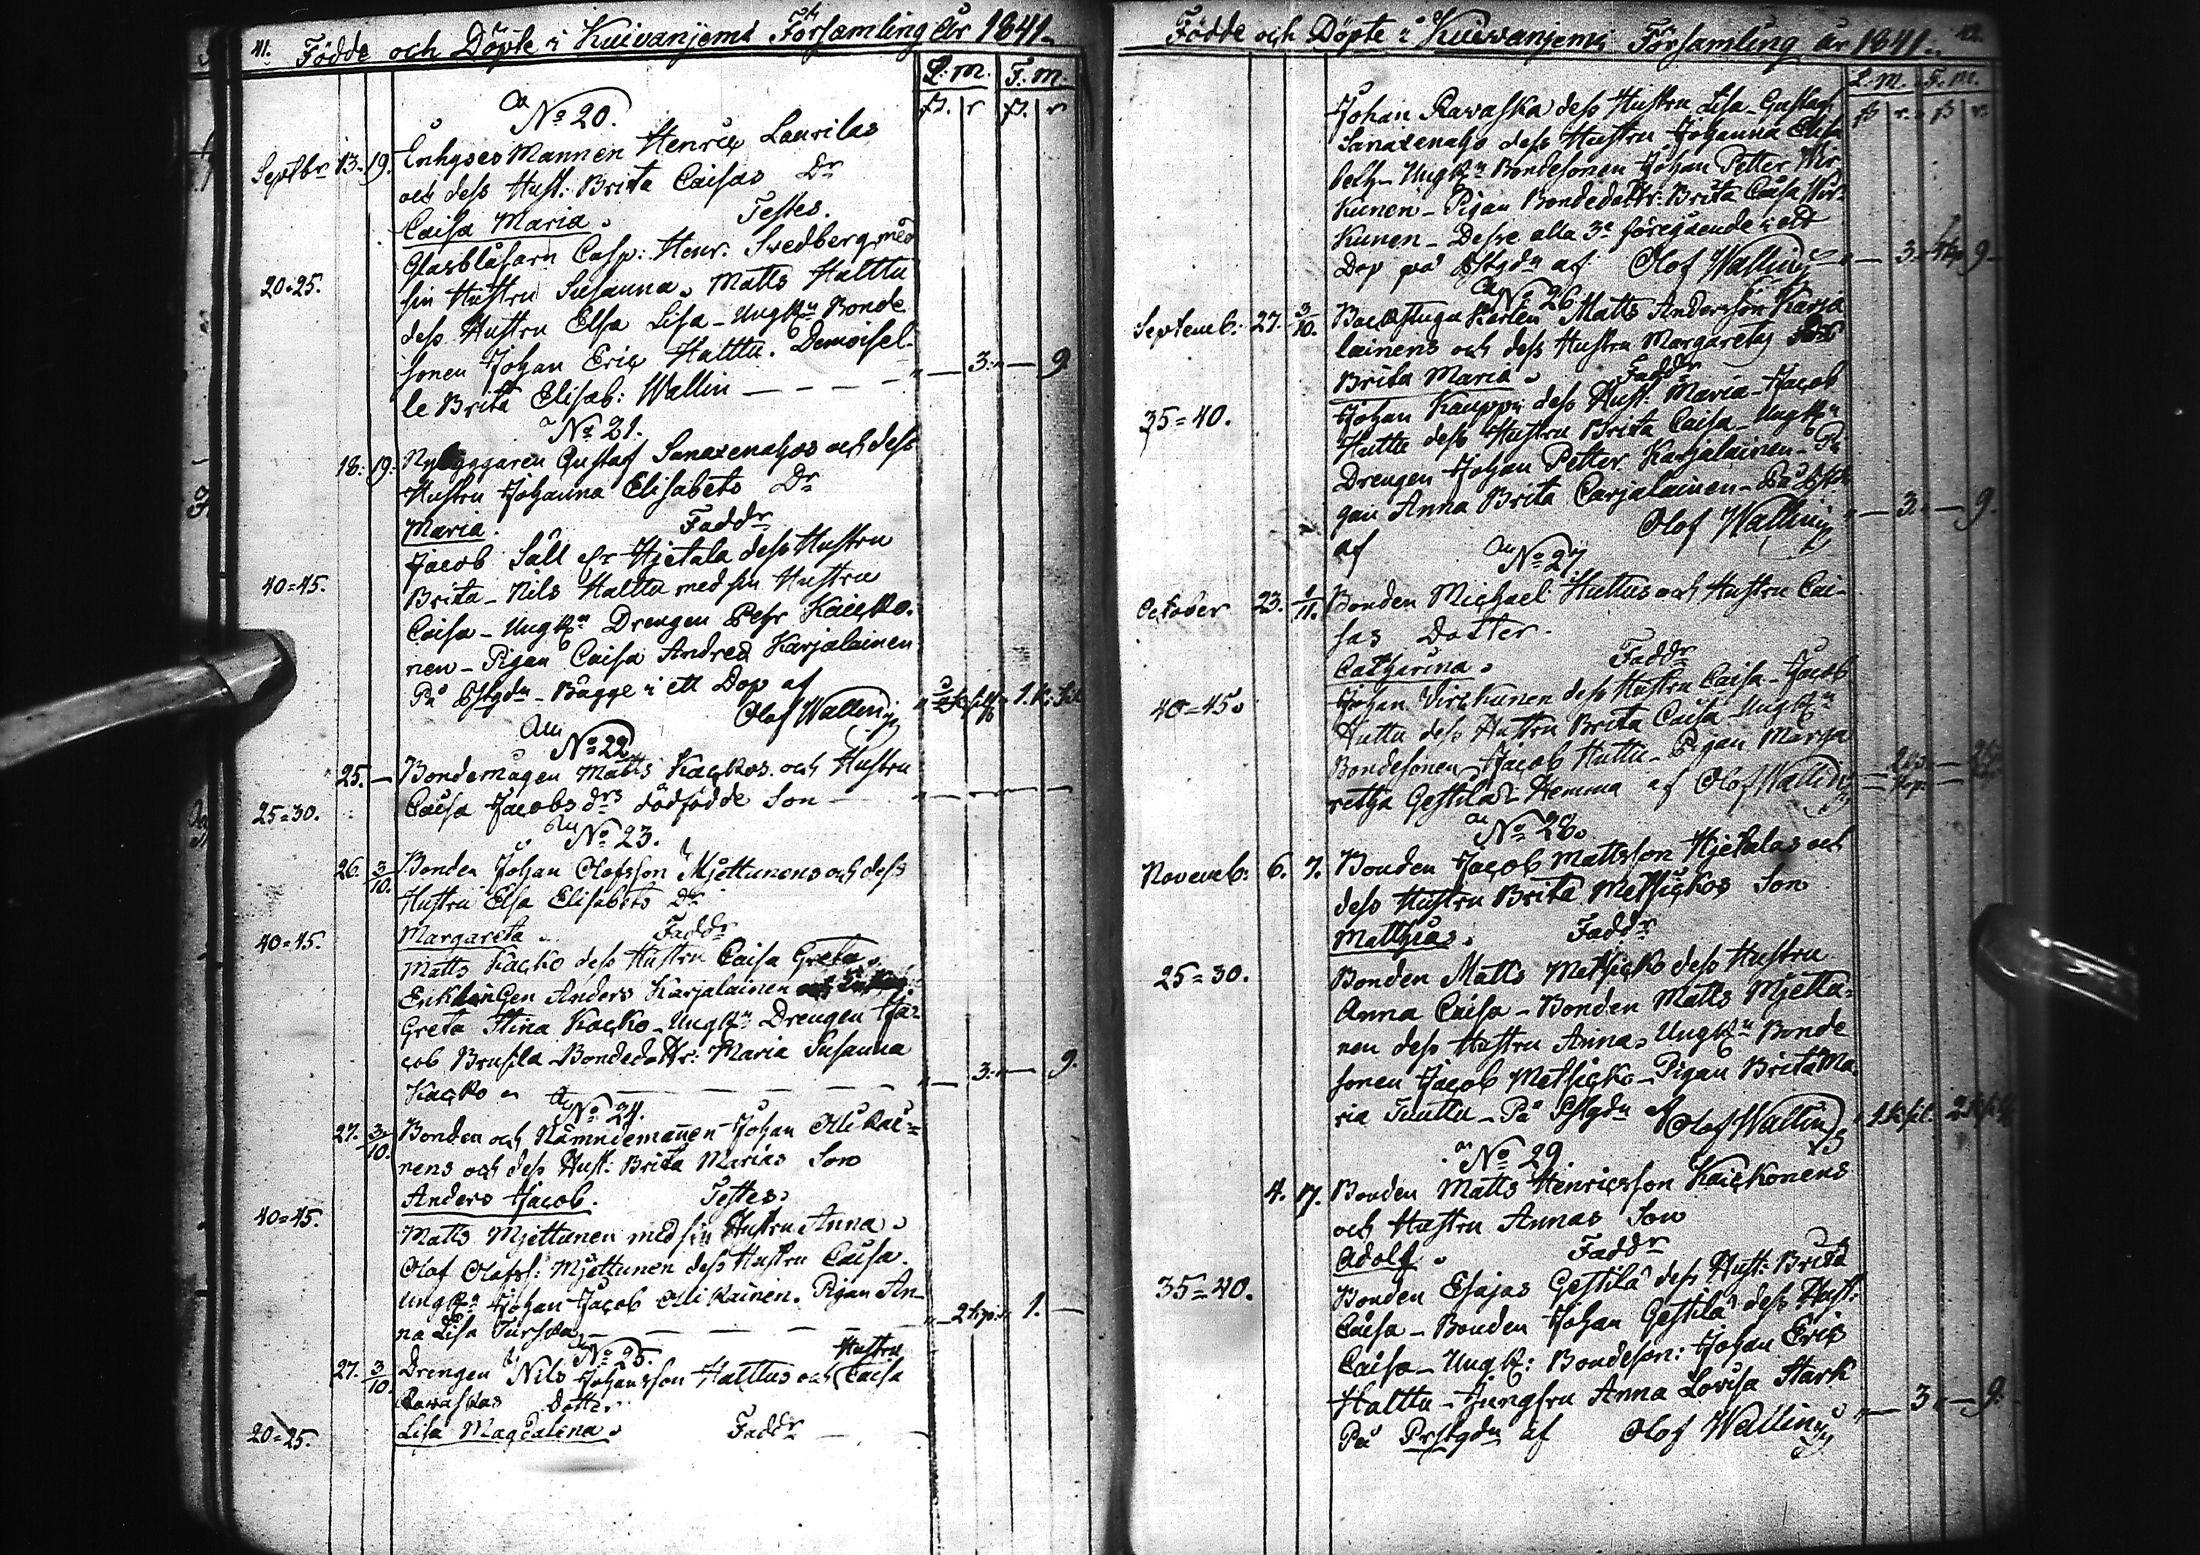 41. Födde och Döpte i Kuivanjemi Församling År 1841.
P: m. F: m.
№ 20.
Septbr 13. 19. Inhyses Mannen Henric Laurilas
och dess Hust: Brita Caisas Dr
Caisa Maria. Testes.
Glasblåsarn Casp: Henr. Swedberg med
20=25. sin Hustru Susanna. Matts Halttu
dess Hustru Elsa Lisa - Ungk:n Bonde
sonen Johan Eric Halttu. Demoisel-
le Brita Elisab: Wallin — 3. — 9
№ 21.
18. 19. Nybyggaren Gustaf Sanaxenahos och dess
Hustru Johanna Elisabets Dr
Maria. Faddr
Jacob Säll Hjetala dess Hustru
40=45. Brita - Nils Halttu med sin Hustru
Caisa - Ungk:n Drengen Pehr Kaicko-
nen - Pigan Caisa Andrea Karjalainen
På Pstgdn - Bägge i ett Dop af
Olof Wallin
№ 22
25. — Bondemågen Matts Kackos och Hustru
25=30. Caisa Jacobsdrs dödfödde Son —
№ 23.
26. 3/10. Bonden Johan Olofsson Mjettunens och dess
Hustru Elsa Elisabets Dr
40=45. Margareta. Faddr
Matts Kacko dess Hustru Caisa Greta.
Enklingen Anders Karjalainen
Greta Stina Kacko - Ungk:n Drengen Ja-
cob Brusila Bondedottr: Maria Susanna
Kacko — 3. — 9.
№ 24.
27. 3/10. Bonden och Nämndemannen Johan Ollikai=
nens och dess Hust: Brita Marias Son
Anders Jacob. Testes.
40=45. Matts Mjettunen med sin Hustru Anna.
Olof Olofss: Mjettunen dess Hustru Caisa.
Ungk:n Johan Jacob Ollikainen. Pigan An-
na Lisa Turska — 2 kp. 1. —
№ 25. Hustru
27. 3/10. Drengen Nils Johansson Halttus och Caisa
Rawaskas Dotter
20=25. Lisa Magdalena. Faddr —
Födde och Döpte i Kuivanjemi Församling År 1841. 42.
P. m. F. m.
Johan Rawaska dess Hustru Lisa - Gustaf
Sanaxenaho dess Hustru Johanna Elisa
beth - Ungk:n Bondesonen Johan Petter Wir-
kunen - Pigan Bondedottr: Brita Caisa Wir-
kunen - Desse alla 3:e föregående i ett
Dop på Pstgdn af Olof Wallin — 3. 9 —
№ 26
Septemb: 27. 3/10. Backstugu Karlen Matts Andersson Karja
lainens och dess Hustru Margaretas
Brita Maria. Faddr
35=40. Johan Kauppi dess Hust: Maria - Jacob
Huttu dess Hustru Brita Caisa - Ungk:n
Drengen Johan Petter Karjalainen - Pi
gan Anna Brita Carjalainen - På Pstgdn
af Olof Wallin — 3. — 9.
№ 27
October 23. 1/11. Bonden Michael Huttus och Hustru Cai-
sas Dotter.
Catharina. Faddr
40=45. Johan Wirckunen dess Hustru Caisa - Jacob
Huttu dess Hustru Brita Caisa - Ungk:n
Bondesonen Jacob Huttu - Pigan Marga
retha Gestilä - Hemma af Olof Wallin
№ 28.
Novemb: 6. 7. Bonden Jacob Mattsson Hjetalas och
dess Hustru Brita Metsickos Son
Matthias. Faddr
25=30. Bonden Matts Metsicko dess Hustru
Anna Caisa - Bonden Matts Mjettu=
nen dess Hustru Anna. Ungk:n Bonde
sonen Jacob Metsicko - Pigan Brita Ma
ria Tuuttu - På Pstgdn af Olof Wallin
№ 29
4. 17. Bonden Matts Henricsson Kaickonens
och Hustru Annas Son
Adolf. Faddr
35=40. Bonden Esajas Gestilä dess Hust: Brita
Caisa - Bonden Johan Gestilä dess Hust:
Caisa - Ungk: Bondeson: Johan Eric
Halttu - Jungfru Anna Lovisa Stark
På Prstgdn af Olof Wallin — 3 — 9.